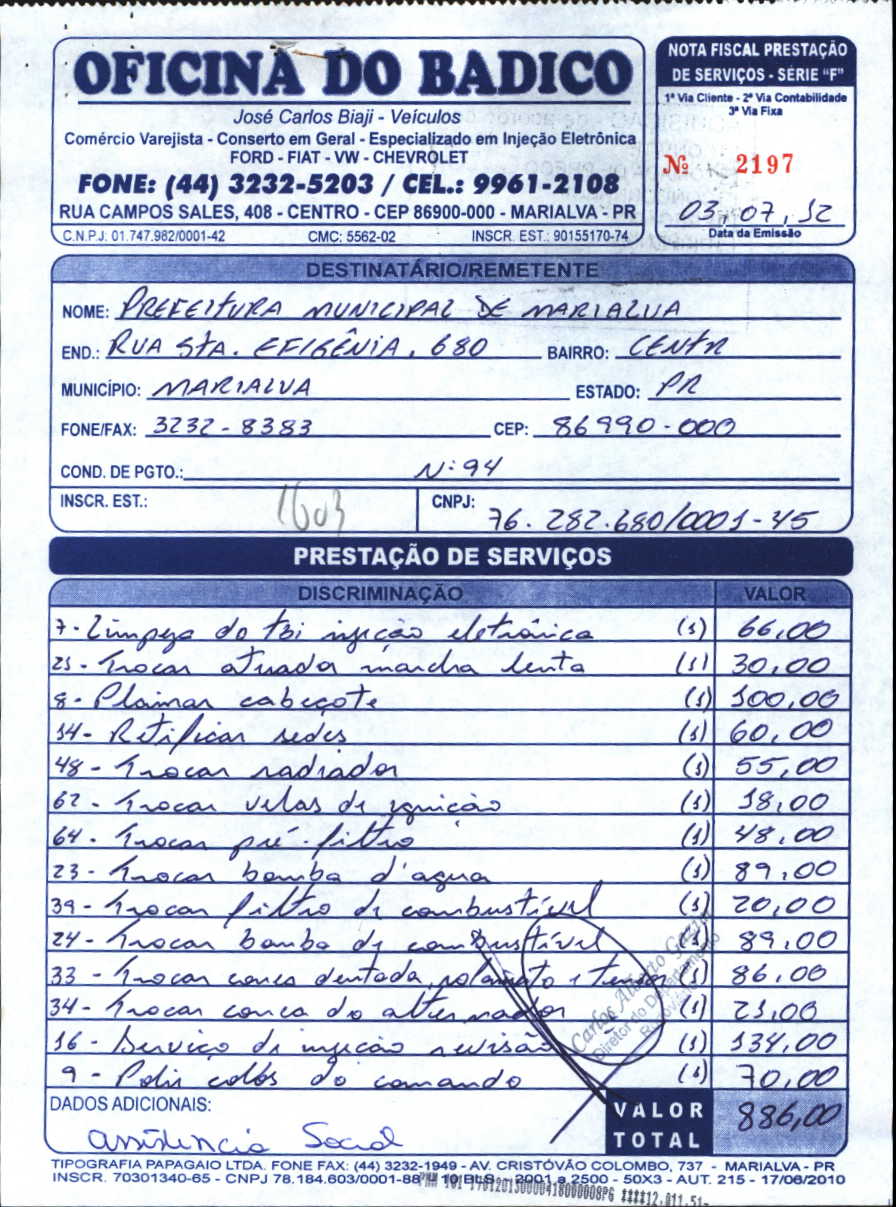 OFICINA DO BADICO
José Carlos Biaji - Veículos
Comércio Varejista - Conserto em Geral - Especializado em Injeção Eletrônica
FORD - FIAT - VW - CHEVROLET
FONE: (44) 3232-5203 / CEL.: 9961-2108
RUA CAMPOS SALES, 408 - CENTRO - CEP 86900-000 - MARIALVA - PR
C.N.P.J: 01.747.982/0001-42 CMC: 5562-02 INSCR. EST.: 90155170-74
NOTA FISCAL PRESTAÇÃO
DE SERVIÇOS - SÉRIE “F”
1ª Via Cliente - 2ª Via Contabilidade
3ª Via Fixa
Nº 2197
03, 07, 12
Data da Emissão
DESTINATÁRIO/REMETENTE
NOME: PREFEITURA MUNICIPAL DE MARIALVA
END.: RUA STA. EFIGÊNIA, 680 BAIRRO: CENTR
MUNICÍPIO: MARIALVA ESTADO: PR
FONE/FAX: 3232-8383 CEP: 86990-000
COND. DE PGTO.: N: 94
INSCR. EST.: 1603 CNPJ: 76.282.680/0001-45
PRESTAÇÃO DE SERVIÇOS
DISCRIMINAÇÃO VALOR
7- Limpeza do tbi injeção eletrônica (1) 66,00
21- Trocar atuador marcha lenta (1) 30,00
8- Plainar cabeçote (1) 100,00
14- Retificar sedes (1) 60,00
48- Trocar radiador (1) 55,00
62- Trocar velas de ignição (1) 18,00
64- Trocar pré-filtro (1) 48,00
23- Trocar bomba d'agua (1) 89,00
39- Trocar filtro de combustível (1) 20,00
24- Trocar bomba de combustível (1) 89,00
33- Trocar correa dentada, rolamento e tensor (1) 86,00
34- Trocar correa do alternador (1) 21,00
16- Serviço de injeção revisão (1) 134,00
9- Polir colos do comando (1) 70,00
Carlos Alberto
Diretor do Departamento
Rodoviário
DADOS ADICIONAIS:
assistencia Social
VALOR TOTAL 886,00
TIPOGRAFIA PAPAGAIO LTDA. FONE FAX: (44) 3232-1949 - AV. CRISTÓVÃO COLOMBO, 737 - MARIALVA - PR
INSCR. 70301340-65 - CNPJ 78.184.603/0001-88 10 BLS - 2001 a 2500 - 50X3 - AUT. 215 - 17/06/2010